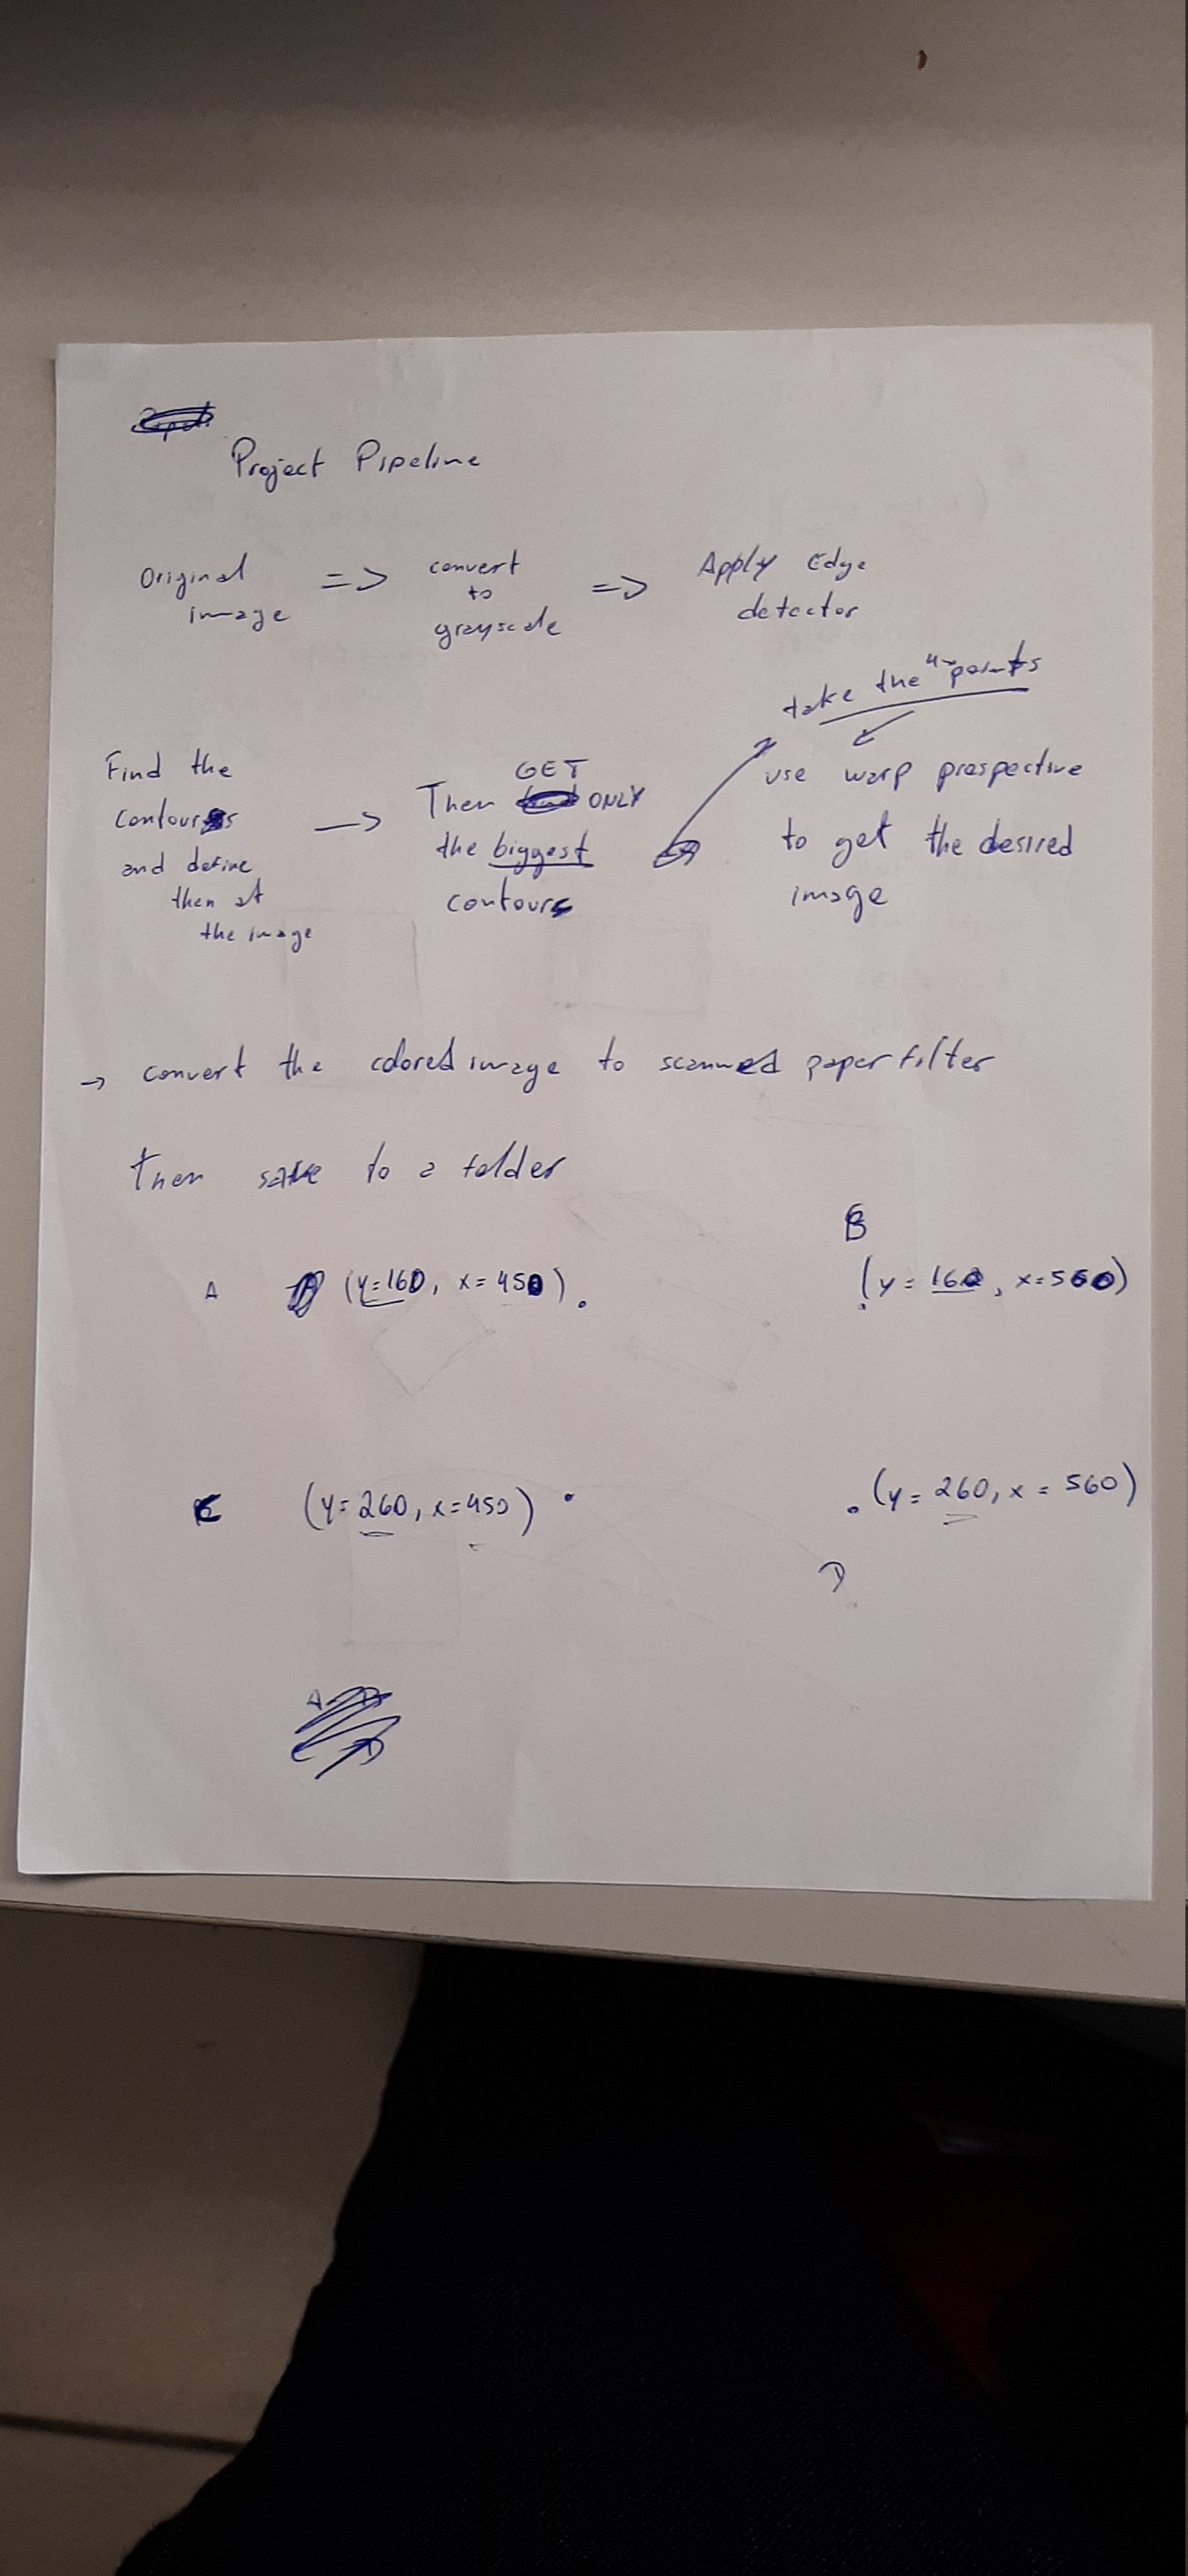 Project Pipeline
Original image => convert to grayscale => Apply Edge detector
take the 4 points
Find the contours and define then at the image -> Then GET ONLY the biggest contours
use warp prospective to get the desired image
-> convert the colored image to scanned paper filter
then save to a folder
B
A (y=160, x=450) . (y=160, x=560)
C (y=260, x=450) . (y=260, x=560)
D